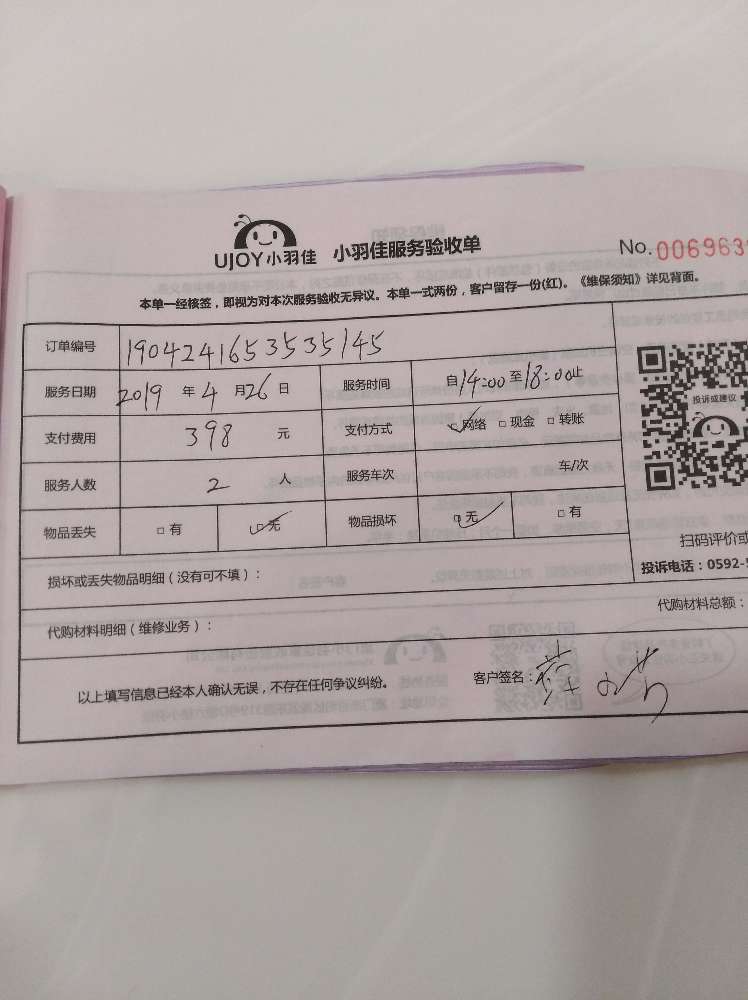 UJOY小羽佳 小羽佳服务验收单 No.006963
本单一经核签，即视为对本次服务验收无异议。本单一式两份，客户留存一份(红)。《维保须知》详见背面。
订单编号 1904241653535145
服务日期 2019 年 4 月 26 日 服务时间 自 14:00 至 18:00 止
支付费用 398 元 支付方式 网络 现金 转账
服务人数 2 人 服务车次 车/次
物品丢失 有 无 物品损坏 无 有
投诉或建议
扫码评价或
投诉电话：0592-5
损坏或丢失物品明细（没有可不填）：
代购材料明细（维修业务）： 代购材料总额：
以上填写信息已经本人确认无误，不存在任何争议纠纷。 客户签名：